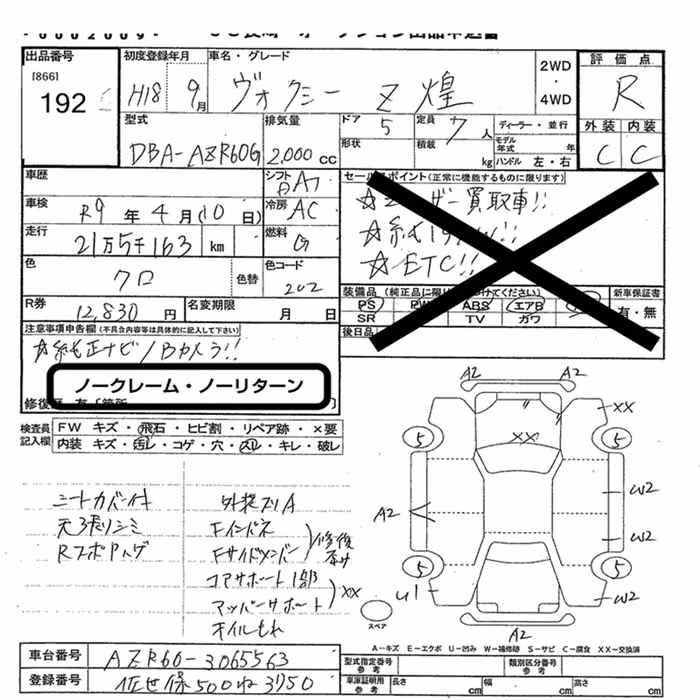 出品番号 初度登録年月 車名・グレード 2WD ・ 4WD 評価点
[866]
192 H18 9月 ヴォクシー Z 煌 R
外装 内装
C C
型式 排気量 ドア 5 定員 7人 ディーラー・並行
形状 積載 kg モデル年式 年
ハンドル 左・右
DBA-AZR60G 2,000cc
車歴 シフト AT
セールスポイント(正常に機能するものに限ります)
車検 R9年4月(10日) 冷房 AC
☆ユーザー買取車!!
走行 21万5千163km 燃料 G
☆ETC!!
色 クロ 色替 色コード 202
装備品(純正品に限り○を付けてください) 新車保証書
PS PW ABS エアB
SR TV ガワ
有・無
R券 12,830円 名変期限 月 日
後日品
注意事項申告欄(不具合内容等は具体的に記入して下さい)
☆純正ナビ/Bカメラ!!
ノークレーム・ノーリターン
検査員記入欄
FW キズ・飛石・ヒビ割・リペア跡・×要
内装 キズ・汚レ・コゲ・穴・スレ・キレ・破レ
シートカバー付 外装スリA
天張りシミ Fインパネ
Rフボハゲ Fサイドメンバー 修復
コアサポート1部
アッパーサポート XX
オイルもれ
A2 A2
XX
5 5
XX
W2
A2
W2
5 5
U1 XX
A2
スペア
A-キズ E-エクボ U-凹み W-補修跡 S-サビ C-腐食 XX-交換済
車台番号 AZR60-3065563
型式指定番号 参考 類別区分番号 参考
登録番号 佐世保500ね3750
車庫証明用 参考 長さ cm 幅 cm 高さ cm